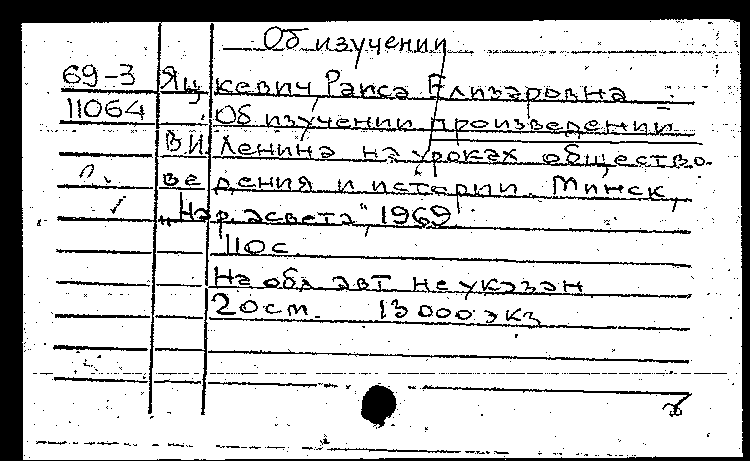 Об изучении
69-3 Яцкевич, Раиса Елизаровна
11064 Об изучении произведений
В.И. Ленина на уроках общество-
ведения и истории. Минск,
"Нар. асвета", 1969
110 с.
На обл. авт. не указан
20 см. 13000 экз